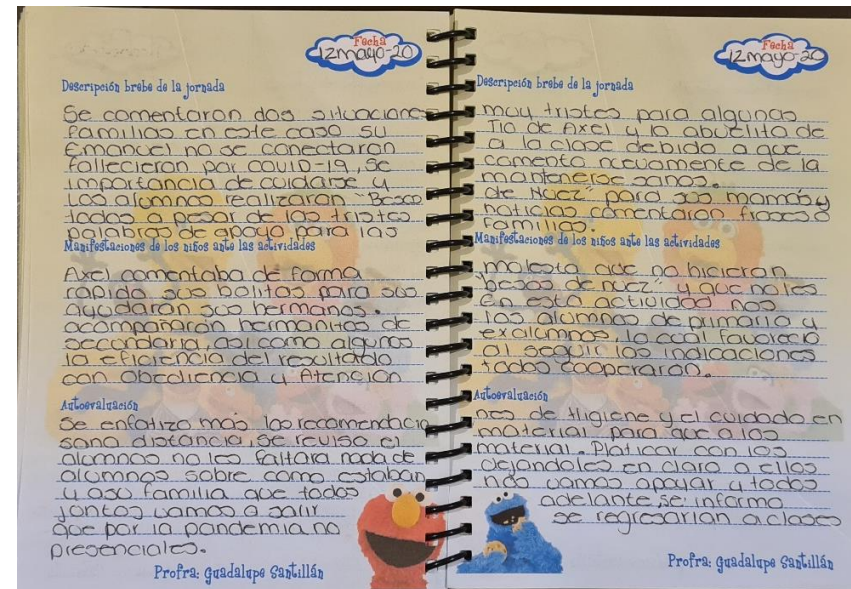 Fecha
12 mayo-20
Descripción brebe de la jornada
Se comentaron dos situaciones
familias en este caso su
Emanuel no se conectaron
fallecieron por COVID-19, se
importancia de cuidarse y
Los alumnos realizaron "Besos
todos a pesar de las tristes
palabras de apoyo para las
Manifestaciones de los niños ante las actividades
Axel comentaba de forma
rápida sus bolitas para sus
ayudaran sus hermanos.
acompañaron hermanitos de
secundaria, asi como algunos
la eficiencia del resultado
con obediencia y Atención
Autoevaluación
Se enfatizo más las recomendacio
sana distancia, se reviso el
alumnos no les faltara nada de
alumnos sobre como estaban
y asu familia que todos
juntos vamos a salir
que por la pandemia no
presenciales.
Profra: Guadalupe Santillán
Fecha
12 mayo-20
Descripción brebe de la jornada
muy tristes para algunas
Tio de Axel y la abuelita de
a la clase debido a que
comento nuevamente de la
mantenerse sanos.
de Nuez" para sus mamás y
noticias comentaron frases o
familias.
Manifestaciones de los niños ante las actividades
molesta que no hicieran
besos de nuez" y que no les
En esta actividad nos
los alumnos de primaria y
exalumnos, lo cual favoreció
al seguir las indicaciones
todos cooperaron.
Autoevaluación
nes de Higiene y el cuidado en
material para que a los
material. Platicar con los
dejandoles en claro a ellos
nos vamos apoyar y todos
adelante, se informo
se regresarian a clases
Profra: Guadalupe Santillán